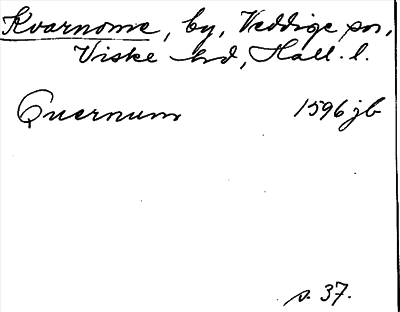 Kvarnome, by, Veddige sn,
Viske hd, Hall. l.
Quernum 1596 jb
s. 37.